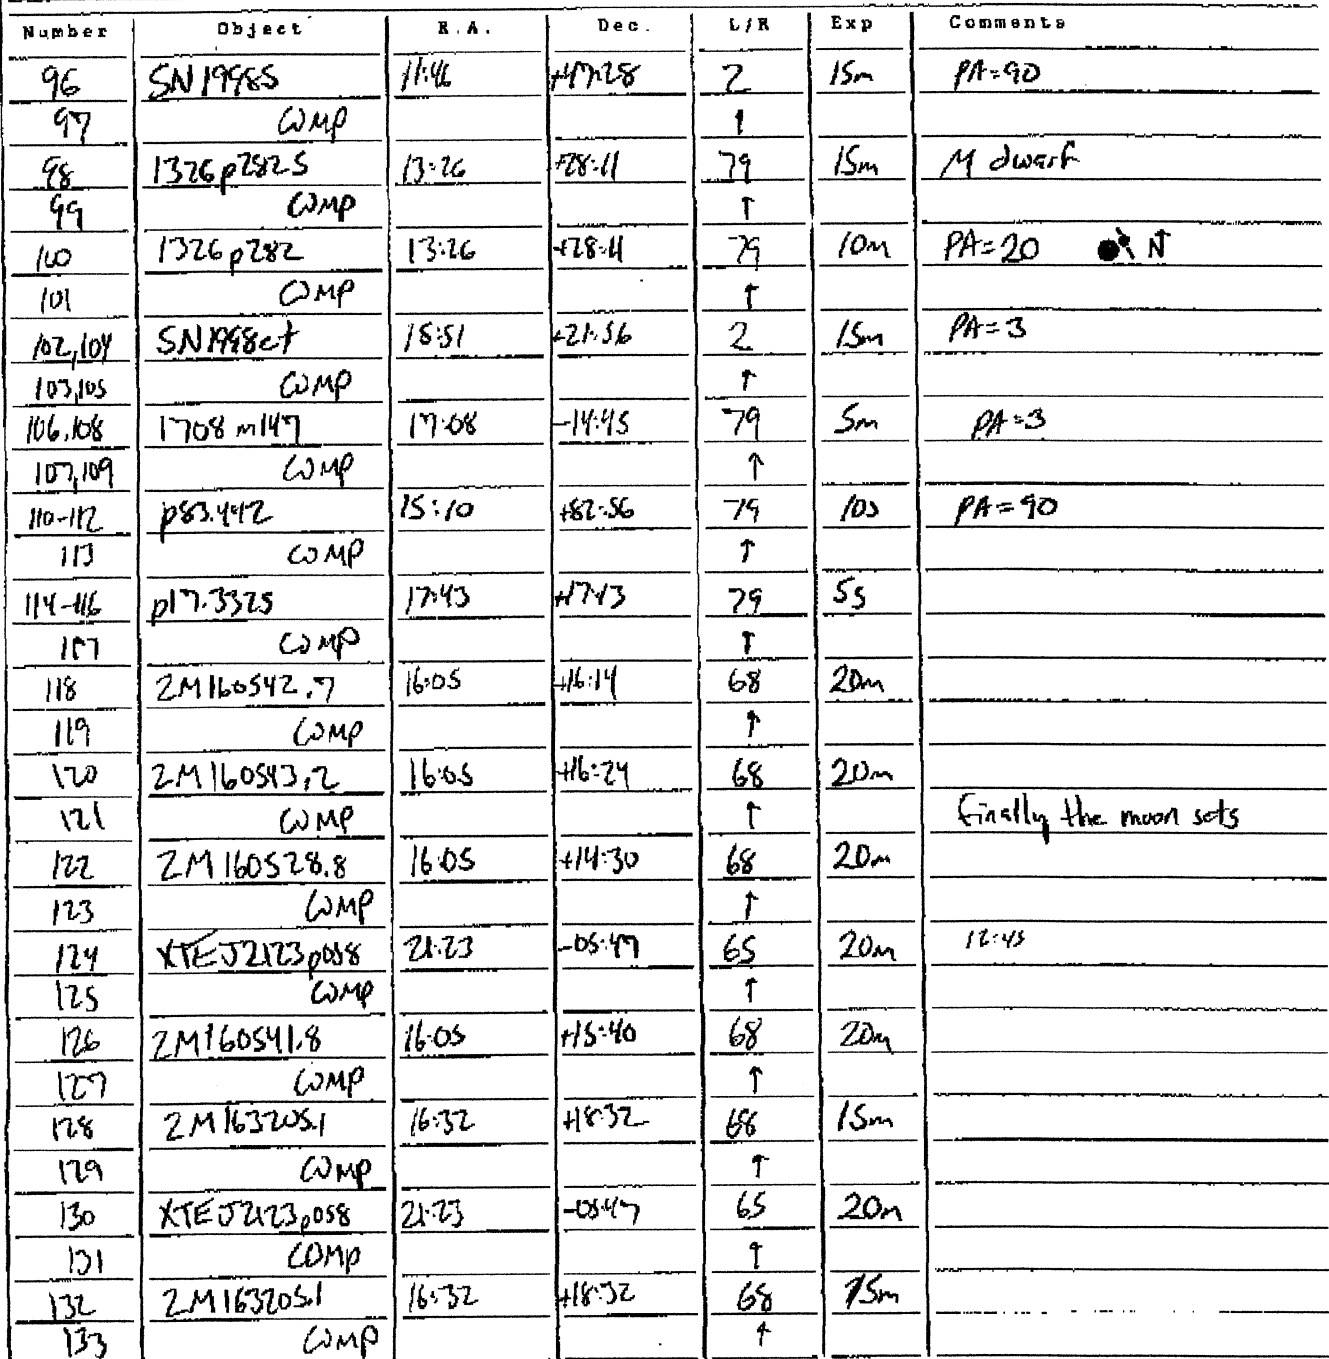 Number Object R.A. Dec. L/R Exp Comments
96 SN1998S 11:46 +47:28 2 15m PA=90
97 COMP ↑
98 1326p282S 13:26 +28:11 79 15m M dwarf
99 COMP ↑
100 1326p282 13:26 +28:11 79 10m PA=20 N
101 COMP ↑
102,104 SN1998ct 18:51 +21:56 2 15m PA=3
103,105 COMP ↑
106,108 1708m147 17:08 -14:45 79 5m PA=3
107,109 COMP ↑
110-112 p83.442 15:10 +82:56 79 10s PA=90
113 COMP ↑
114-116 p17.3325 17:43 +17:13 79 5s
117 COMP ↑
118 2M160542.7 16:05 +16:14 68 20m
119 COMP ↑
120 2M160543.2 16:05 +16:24 68 20m
121 COMP ↑ Finally the moon sets
122 2M160528.8 16:05 +14:30 68 20m
123 COMP ↑
124 XTEJ2123p058 21:23 -05:47 65 20m 12:45
125 COMP ↑
126 2M160541.8 16:05 +15:40 68 20m
127 COMP ↑
128 2M163205.1 16:32 +18:32 68 15m
129 COMP ↑
130 XTEJ2123p058 21:23 -05:47 65 20m
131 COMP ↑
132 2M163205.1 16:32 +18:32 68 15m
133 COMP ↑